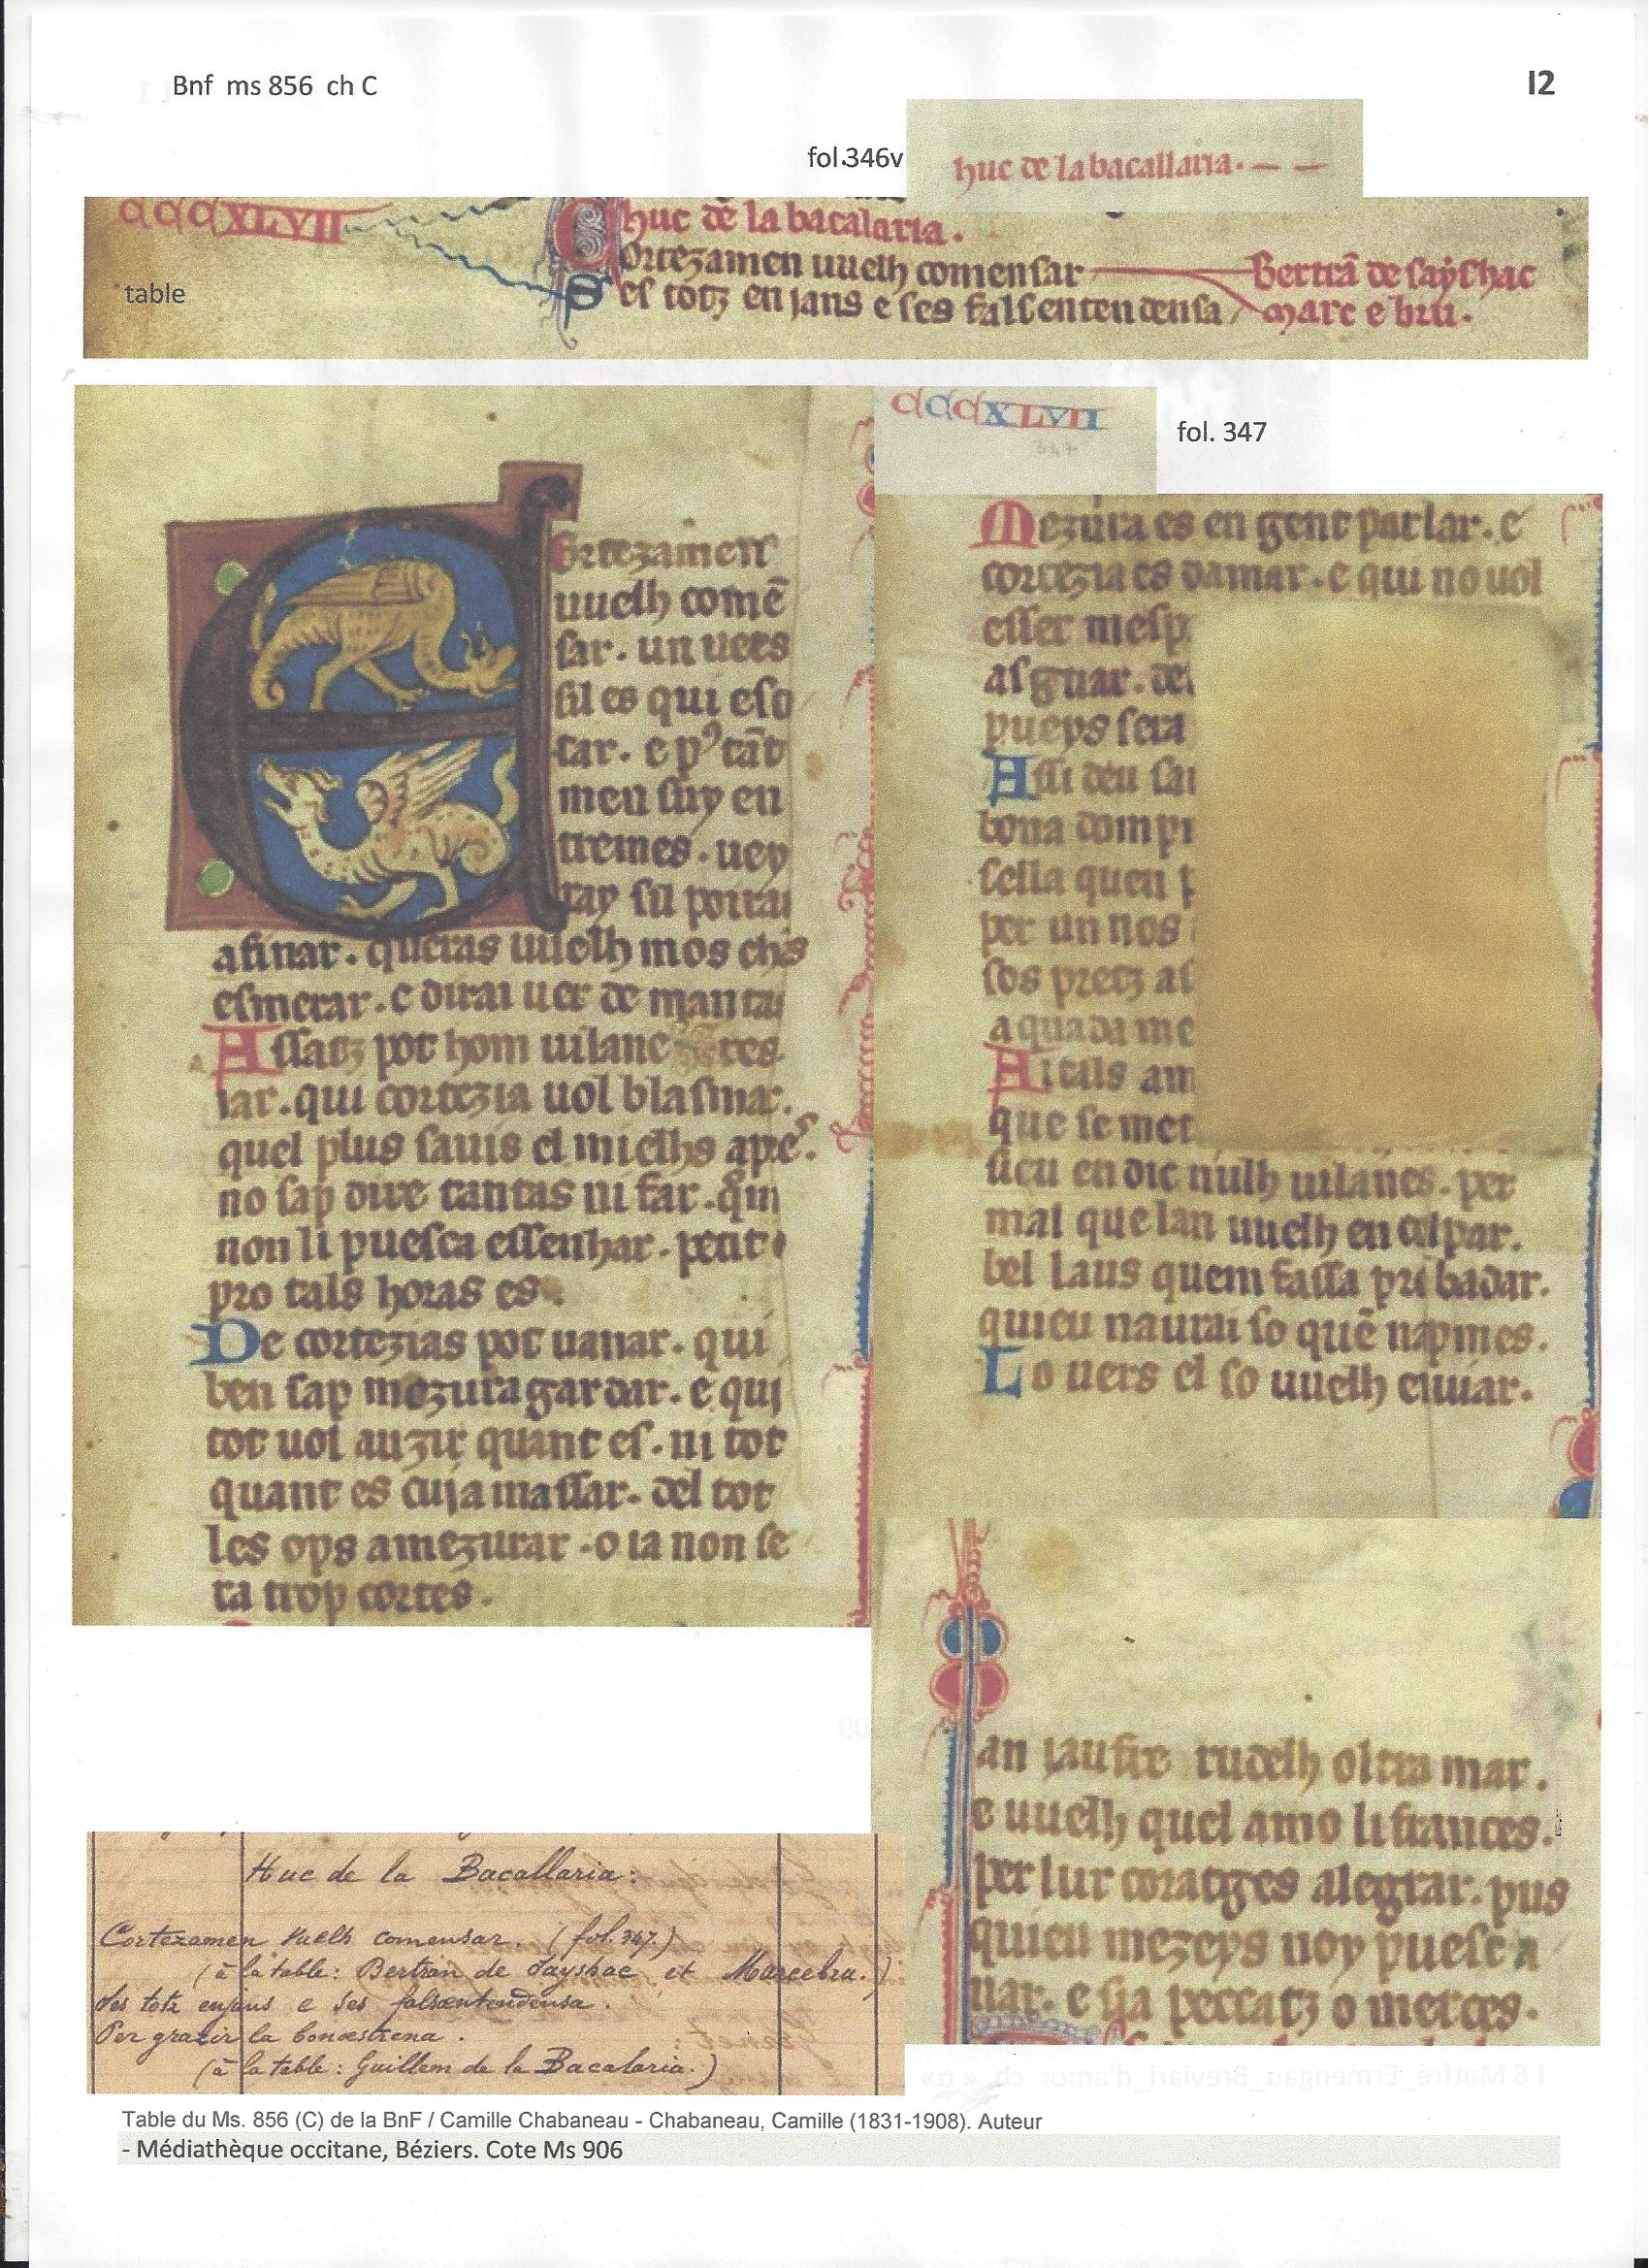 Bnf ms 856 ch C
I2
fol.346v
huc de la bacallaria. — —
CCCXLVII
huc de la bacalaria.
Cortezamen uuelh comensar
Bertrā de sayshac
table
Ses totz enjans e ses fals entendensa
marc e bru.
CCCXLVII
347
fol. 347
ortezamen
uuelh comē
sar. un uers
sil es qui esco
tar. e pꝰ tāt
men suy en
tremes. uey
ray sil poirai
afinar. queras uuelh mos chās
esmerar. e dirai uer de mantas
Assatz pot hom uilane res
iar. qui cortezia uol blasmar.
quel plus sauis el mielhs apres.
no sap dire tantas ni far. qm
non li puesca essenhar. petit o
pro tals horas es.
De cortezias pot uanar. qui
ben sap mezura gardar. e qui
tot uol auzir quant es. ni tot
quant es cuja massar. del tot
les ops amezurar. o ia non se
ra trop cortes.
Mezura es en gent parlar. e
cortezia es damar. e qui no uol
esser mesp
asguar. de
pueys sera
Assi deu sa
bona dom pr
sella quen p
per un nos
sos pretz as
aquada me
Aitals am
que se met
sieu en dic nulh uilanes. per
mal que lan uuelh encolpar.
bel laus quem fassa pri badar.
quieu naurai so quē napmes.
Lo uers el so uuelh enuiar.
an jaufre rudelh oltra mar.
e uuelh quel amo li frances.
per lur coratges alegrar. pus
quieu mezeys noy puesc a
nar. e sia peccatz o merces.
Huc de la Bacallaria:
Cortezamen vuelh comensar. (fol. 347.)
(à la table: Bertran de Sayshac et Marcebru.)
Ses totz enjans e ses falsentendensa.
Per grazir la bonaestrena.
(à la table: Guillem de la Bacalaria.)
Table du Ms. 856 (C) de la BnF / Camille Chabaneau - Chabaneau, Camille (1831-1908). Auteur
- Médiathèque occitane, Béziers. Cote Ms 906